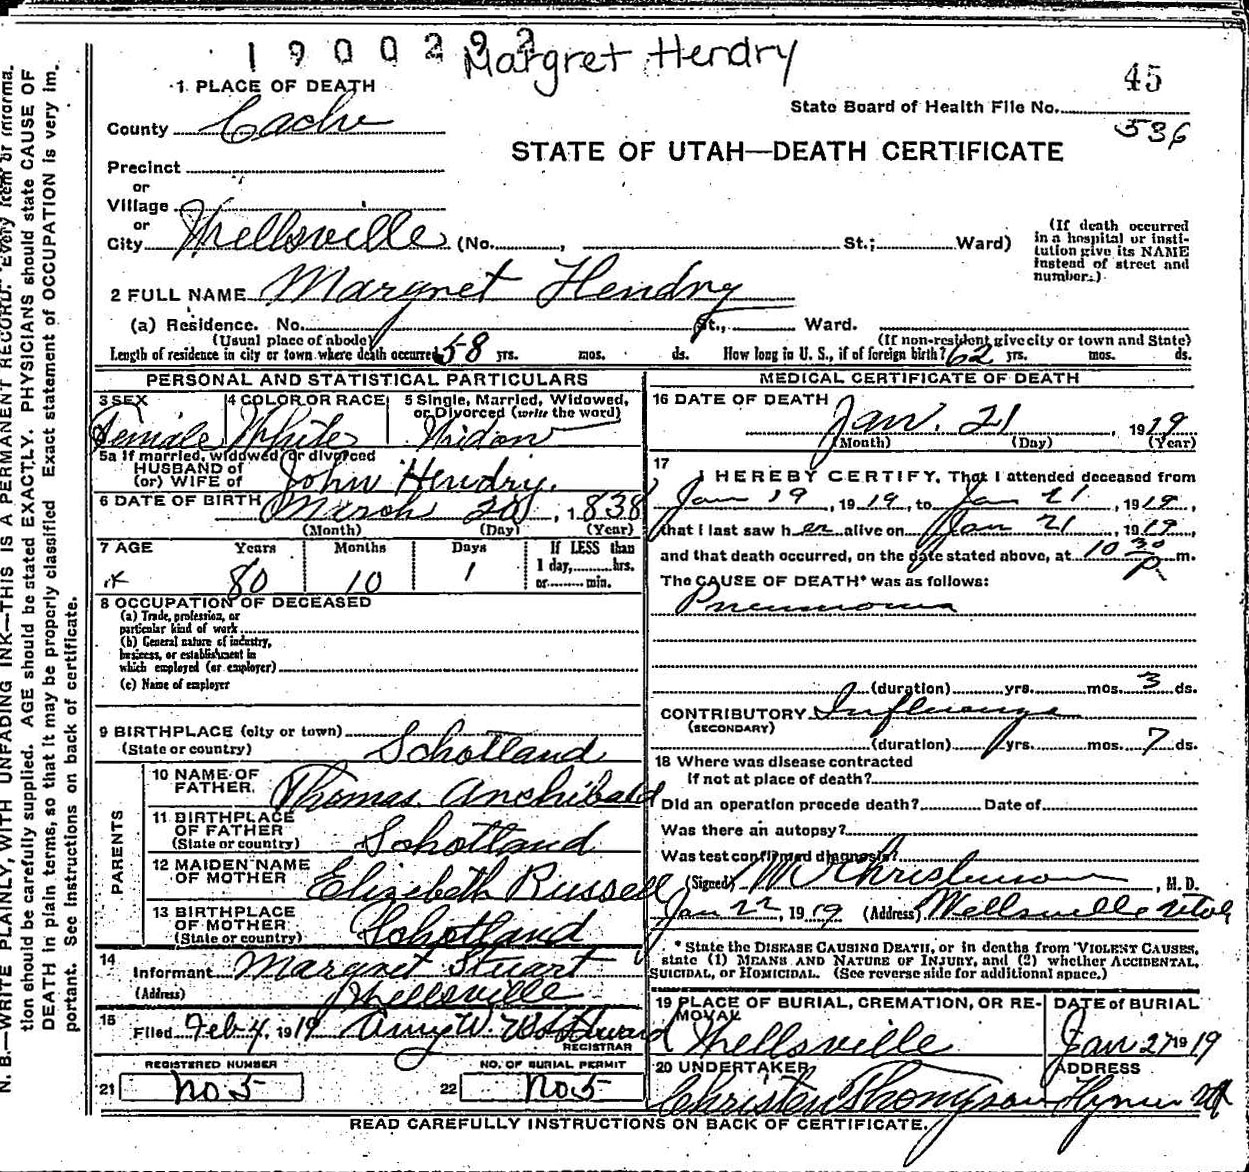 1900292
Margret Hendry
45
1 PLACE OF DEATH
State Board of Health File No.
536
County Cache
STATE OF UTAH—DEATH CERTIFICATE
Precinct
or
Village
or
City Wellsville (No. , St.; Ward)
(If death occurred
in a hospital or insti-
tution give its NAME
instead of street and
number.)
2 FULL NAME Margret Hendry
(a) Residence. No. St., Ward.
(Usual place of abode) (If non-resident give city or town and State)
Length of residence in city or town where death occurred 58 yrs. mos. ds. How long in U. S., if of foreign birth? 62 yrs. mos. ds.
PERSONAL AND STATISTICAL PARTICULARS
3 SEX
Female
4 COLOR OR RACE
White
5 Single, Married, Widowed,
or Divorced (write the word)
Widow
5a If married, widowed or divorced
HUSBAND of
(or) WIFE of John Hendry.
6 DATE OF BIRTH March 20, 1838
(Month) (Day) (Year)
7 AGE Years Months Days
80 10 1
If LESS than
1 day, hrs.
or min.
8 OCCUPATION OF DECEASED
(a) Trade, profession, or
particular kind of work
(b) General nature of industry,
business, or establishment in
which employed (or employer)
(c) Name of employer
9 BIRTHPLACE (city or town)
(State or country) Schotland
PARENTS
10 NAME OF
FATHER Thomas Archibald
11 BIRTHPLACE
OF FATHER
(State or country) Schotland
12 MAIDEN NAME
OF MOTHER Elizebeth Russell
13 BIRTHPLACE
OF MOTHER
(State or country) Schotland
14
Informant Margret Stuart
(Address) Wellsville
15
Filed Feb 4, 1919 Amy W.
REGISTRAR
REGISTERED NUMBER
21 No 5
NO. OF BURIAL PERMIT
22 No 5
MEDICAL CERTIFICATE OF DEATH
16 DATE OF DEATH
Jan. 21, 1919
(Month) (Day) (Year)
17
I HEREBY CERTIFY, That I attended deceased from
Jan 19, 1919, to Jan 21, 1919,
that I last saw her alive on Jan 21, 1919,
and that death occurred, on the date stated above, at 10 30 P m.
The CAUSE OF DEATH* was as follows:
Pneumonia
(duration) yrs. mos. 3 ds.
CONTRIBUTORY Influenza
(SECONDARY)
(duration) yrs. mos. 7 ds.
18 Where was disease contracted
if not at place of death?
Did an operation precede death? Date of
Was there an autopsy?
Was test confirmed diagnosis?
(Signed) Christenson, M. D.
Jan 22, 1919 (Address) Wellsville Utah
* State the DISEASE CAUSING DEATH, or in deaths from VIOLENT CAUSES,
state (1) MEANS AND NATURE OF INJURY, and (2) whether ACCIDENTAL,
SUICIDAL, or HOMICIDAL. (See reverse side for additional space.)
19 PLACE OF BURIAL, CREMATION, OR RE-
MOVAL
Wellsville
DATE of BURIAL
Jan 27 1919
20 UNDERTAKER
ADDRESS
READ CAREFULLY INSTRUCTIONS ON BACK OF CERTIFICATE.
N. B.—WRITE PLAINLY, WITH UNFADING INK—THIS IS A PERMANENT RECORD. Every item of informa-
tion should be carefully supplied. AGE should be stated EXACTLY. PHYSICIANS should state CAUSE OF
DEATH in plain terms, so that it may be properly classified. Exact statement of OCCUPATION is very im-
portant. See instructions on back of certificate.